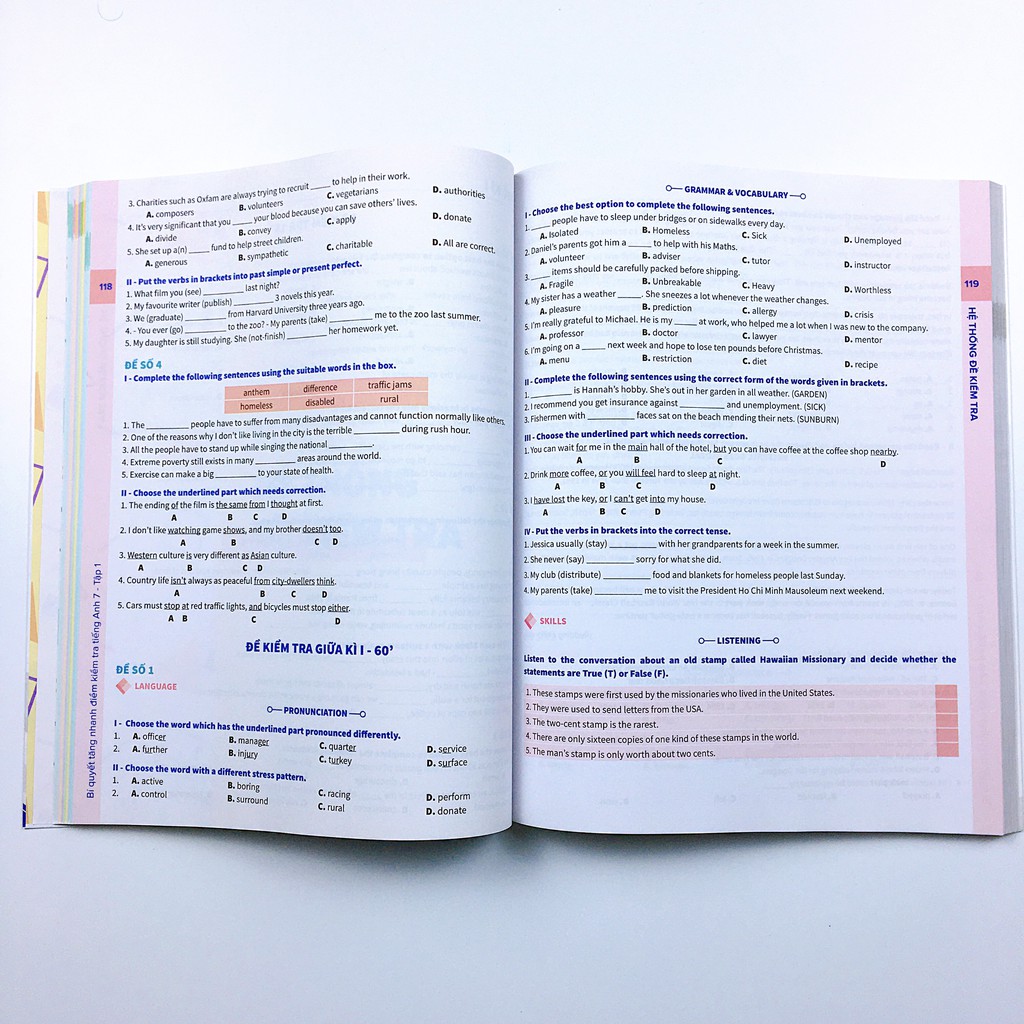 3. Charities such as Oxfam are always trying to recruit ____ to help in their work.
A. composers B. volunteers C. vegetarians D. authorities
4. It's very significant that you ____ your blood because you can save others' lives.
A. divide B. convey C. apply D. donate
5. She set up a(n) ____ fund to help street children.
A. generous B. sympathetic C. charitable D. All are correct.
II - Put the verbs in brackets into past simple or present perfect.
1. What film you (see) ________ last night?
2. My favourite writer (publish) ________ 3 novels this year.
3. We (graduate) ________ from Harvard University three years ago.
4. - You ever (go) ________ to the zoo? - My parents (take) ________ me to the zoo last summer.
5. My daughter is still studying. She (not-finish) ________ her homework yet.
ĐỀ SỐ 4
I - Complete the following sentences using the suitable words in the box.
anthem difference traffic jams
homeless disabled rural
1. The ________ people have to suffer from many disadvantages and cannot function normally like others.
2. One of the reasons why I don't like living in the city is the terrible ________ during rush hour.
3. All the people have to stand up while singing the national ________.
4. Extreme poverty still exists in many ________ areas around the world.
5. Exercise can make a big ________ to your state of health.
II - Choose the underlined part which needs correction.
1. The ending of the film is the same from I thought at first.
A B C D
2. I don't like watching game shows, and my brother doesn't too.
A B C D
3. Western culture is very different as Asian culture.
A B C D
4. Country life isn't always as peaceful from city-dwellers think.
A B C D
5. Cars must stop at red traffic lights, and bicycles must stop either.
A B C D
ĐỀ KIỂM TRA GIỮA KÌ I - 60'
ĐỀ SỐ 1
LANGUAGE
PRONUNCIATION
I - Choose the word which has the underlined part pronounced differently.
1. A. officer B. manager C. quarter D. service
2. A. further B. injury C. turkey D. surface
II - Choose the word with a different stress pattern.
1. A. active B. boring C. racing D. perform
2. A. control B. surround C. rural D. donate
118
Bí quyết tăng nhanh điểm kiểm tra tiếng Anh 7 - Tập 1
GRAMMAR & VOCABULARY
I - Choose the best option to complete the following sentences.
1. ____ people have to sleep under bridges or on sidewalks every day.
A. Isolated B. Homeless C. Sick D. Unemployed
2. Daniel's parents got him a ____ to help with his Maths.
A. volunteer B. adviser C. tutor D. instructor
3. ____ items should be carefully packed before shipping.
A. Fragile B. Unbreakable C. Heavy D. Worthless
4. My sister has a weather ____. She sneezes a lot whenever the weather changes.
A. pleasure B. prediction C. allergy D. crisis
5. I'm really grateful to Michael. He is my ____ at work, who helped me a lot when I was new to the company.
A. professor B. doctor C. lawyer D. mentor
6. I'm going on a ____ next week and hope to lose ten pounds before Christmas.
A. menu B. restriction C. diet D. recipe
II - Complete the following sentences using the correct form of the words given in brackets.
1. ________ is Hannah's hobby. She's out in her garden in all weather. (GARDEN)
2. I recommend you get insurance against ________ and unemployment. (SICK)
3. Fishermen with ________ faces sat on the beach mending their nets. (SUNBURN)
III - Choose the underlined part which needs correction.
1. You can wait for me in the main hall of the hotel, but you can have coffee at the coffee shop nearby.
A B C D
2. Drink more coffee, or you will feel hard to sleep at night.
A B C D
3. I have lost the key, or I can't get into my house.
A B C D
IV - Put the verbs in brackets into the correct tense.
1. Jessica usually (stay) ________ with her grandparents for a week in the summer.
2. She never (say) ________ sorry for what she did.
3. My club (distribute) ________ food and blankets for homeless people last Sunday.
4. My parents (take) ________ me to visit the President Ho Chi Minh Mausoleum next weekend.
SKILLS
LISTENING
Listen to the conversation about an old stamp called Hawaiian Missionary and decide whether the
statements are True (T) or False (F).
1. These stamps were first used by the missionaries who lived in the United States.
2. They were used to send letters from the USA.
3. The two-cent stamp is the rarest.
4. There are only sixteen copies of one kind of these stamps in the world.
5. The man's stamp is only worth about two cents.
119
HỆ THỐNG ĐỀ KIỂM TRA